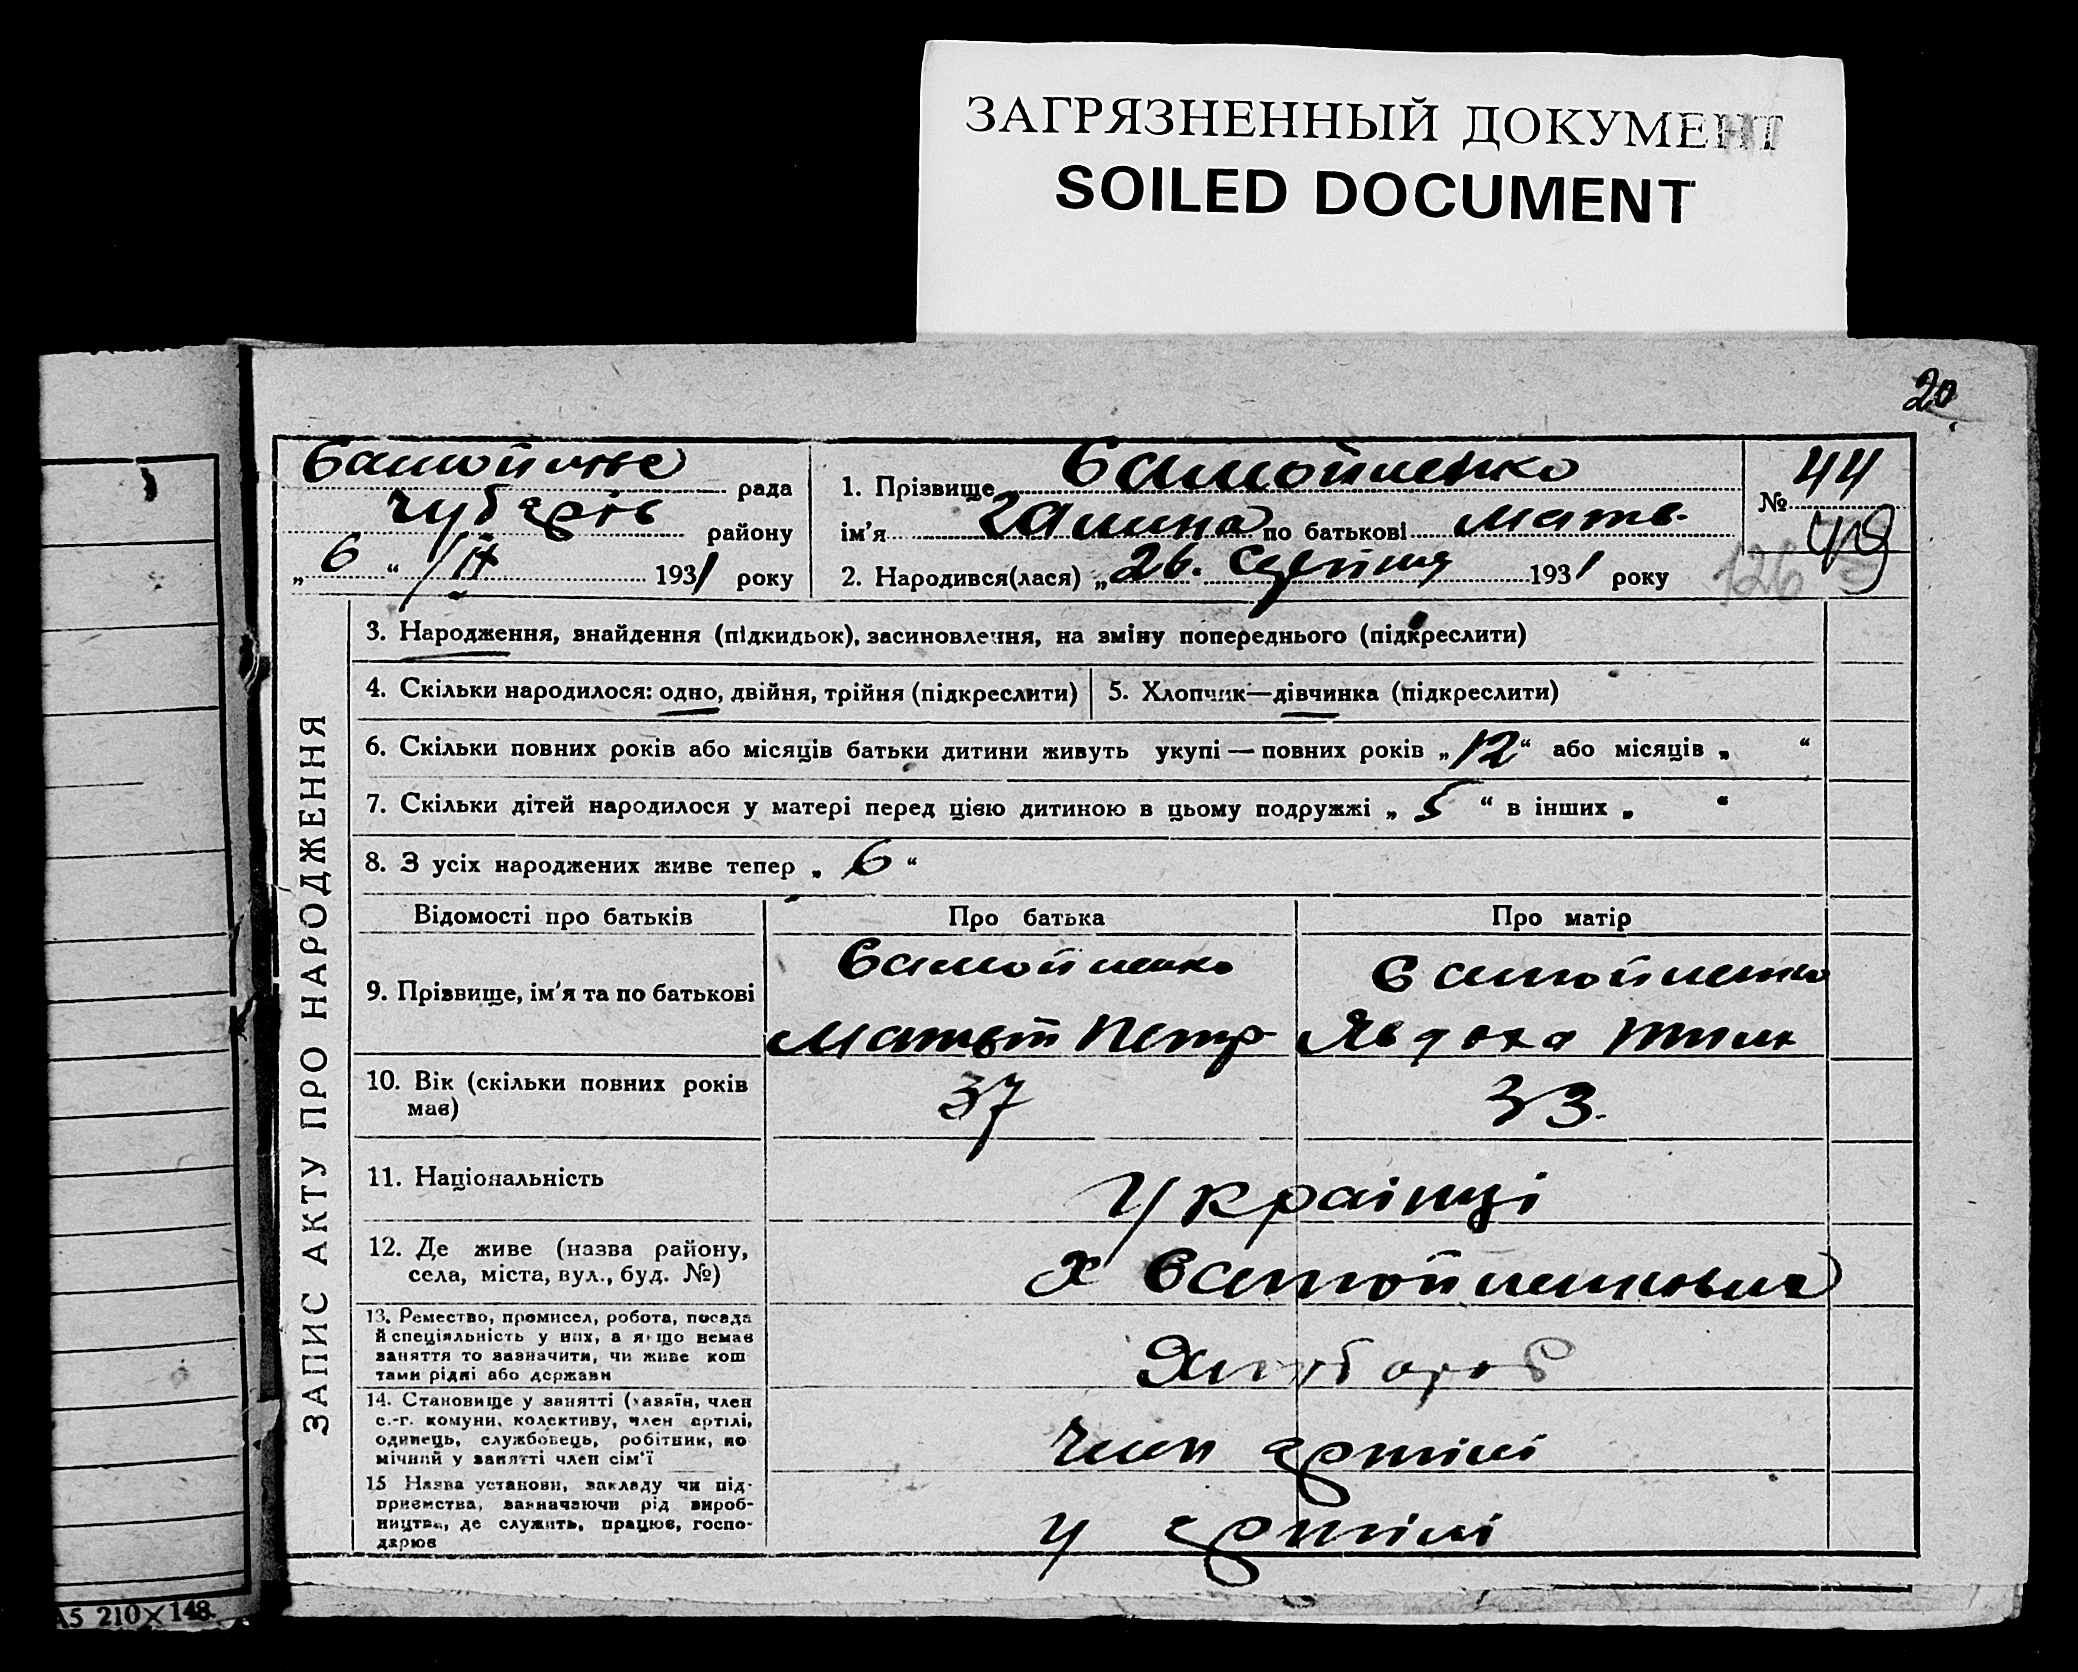 ЗАГРЯЗНЕННЫЙ ДОКУМЕНТ
SOILED DOCUMENT
20
рада
Чубарів району
„6“ IX 1931 року
1. Прізвище Самойленко
ім'я Галина по батькові Матв.
2. Народився(лася) „26. серпня 1931 року
№ 44
49
126
ЗАПИС АКТУ ПРО НАРОДЖЕННЯ
3. Народження, знайдення (підкидьок), засиновлення, на зміну попереднього (підкреслити)
4. Скільки народилося: одно, двійня, трійня (підкреслити)
5. Хлопчик—дівчинка (підкреслити)
6. Скільки повних років або місяців батьки дитини живуть укупі — повних років „12“ або місяців „ “
7. Скільки дітей народилося у матері перед цією дитиною в цьому подружжі „5“ в інших „ “
8. З усіх народжених живе тепер „6“
Відомості про батьків
Про батька
Про матір
9. Прізвище, ім'я та по батькові
Самойленко
Матвій Петр
Самойленко
Явдоха Тим
10. Вік (скільки повних років
має)
37
33.
11. Національність
Українці
12. Де живе (назва району,
села, міста, вул., буд. №)
х Самойленкова
13. Ремество, промисел, робота, посада
й спеціяльність у них, а якщо немає
заняття то зазначити, чи живе кош
тами рідні або держави
Хлібороб
14. Становище у занятті (хазяїн, член
с.-г. комуни, колективу, член артілі,
одинець, службовець, робітник, по
мічний у занятті член сім'ї
член артілі
15 Назва установи, закладу чи під-
приємства, зазначаючи рід вироб-
ництва, де служить, працює, госпо-
дарює
у артілі
А5 210×148.